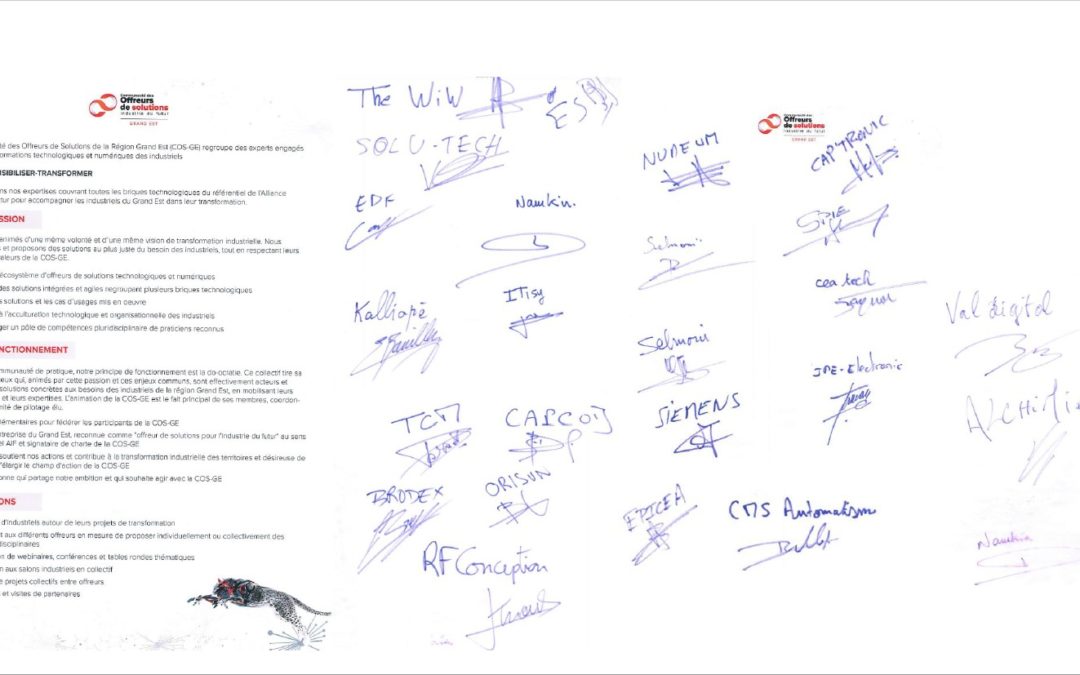 Communauté des
Offreurs
de solutions
INDUSTRIE DU FUTUR
GRAND EST
té des Offreurs de Solutions de la Région Grand Est (COS-GE) regroupe des experts engagés
ormations technologiques et numériques des industriels
SIBILISER-TRANSFORMER
ns nos expertises couvrant toutes les briques technologiques du référentiel de l'Alliance
tur pour accompagner les industriels du Grand Est dans leur transformation.
SSION
animés d'une même volonté et d'une même vision de transformation industrielle. Nous
s et proposons des solutions au plus juste du besoin des industriels, tout en respectant leurs
valeurs de la COS-GE.
écosystème d'offreurs de solutions technologiques et numériques
des solutions intégrées et agiles regroupant plusieurs briques technologiques
s solutions et les cas d'usages mis en oeuvre
à l'acculturation technologique et organisationnelle des industriels
ger un pôle de compétences pluridisciplinaire de praticiens reconnus
NCTIONNEMENT
mmunauté de pratique, notre principe de fonctionnement est la do-ocratie. Ce collectif tire sa
eux qui, animés par cette passion et ces enjeux communs, sont effectivement acteurs et
solutions concrètes aux besoins des industriels de la région Grand Est, en mobilisant leurs
s et leurs expertises. L'animation de la COS-GE est le fait principal de ses membres, coordon-
mité de pilotage élu.
lémentaires pour fédérer les participants de la COS-GE
treprise du Grand Est, reconnue comme "offreur de solutions pour l'industrie du futur" au sens
el AIF et signataire de charte de la COS-GE
soutient nos actions et contribue à la transformation industrielle des territoires et désireuse de
'élargir le champ d'action de la COS-GE
onne qui partage notre ambition et qui souhaite agir avec la COS-GE
ONS
d'industriels autour de leurs projets de transformation
t aux différents offreurs en mesure de proposer individuellement ou collectivement des
disciplinaires
on de webinaires, conférences et tables rondes thématiques
n aux salons industriels en collectif
e projets collectifs entre offreurs
s et visites de partenaires
The WiW
SOLU-TECH
EDF
Namkin.
Kalliopé
ITisy
TCM
CAPCOIJ
BRODEX
ORISUN
RF Conception
NUMEUM
Selmoni
Selmoni
SIEMENS
EPICEA
CMS Automatism
Communauté des
Offreurs
de solutions
INDUSTRIE DU FUTUR
GRAND EST
CAPTRONIC
SPIE
cea tech
JPE-Electronic
Val digital
Namkin